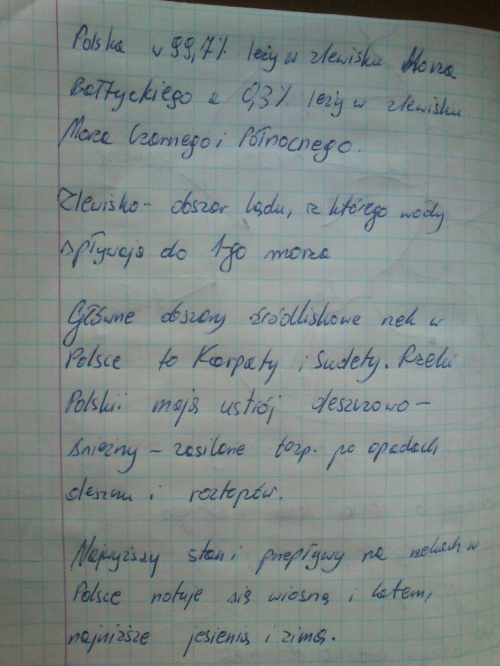 Polska w 99,7% leży w zlewisku Morza
Bałtyckiego a 0,3% leży w zlewisku
Morza Czarnego i Północnego.
Zlewisko - obszar lądu, z którego wody
spływają do 1-go morza
Główne obszary źródliskowe rzek w
Polsce to Karpaty i Sudety. Rzeki
Polski mają ustrój deszczowo -
śnieżny - zasilane bezp. po opadach
deszczu i roztopów.
Najwyższy stan i przepływy na rzekach w
Polsce notuje się wiosną i latem,
najniższe jesienią i zimą.